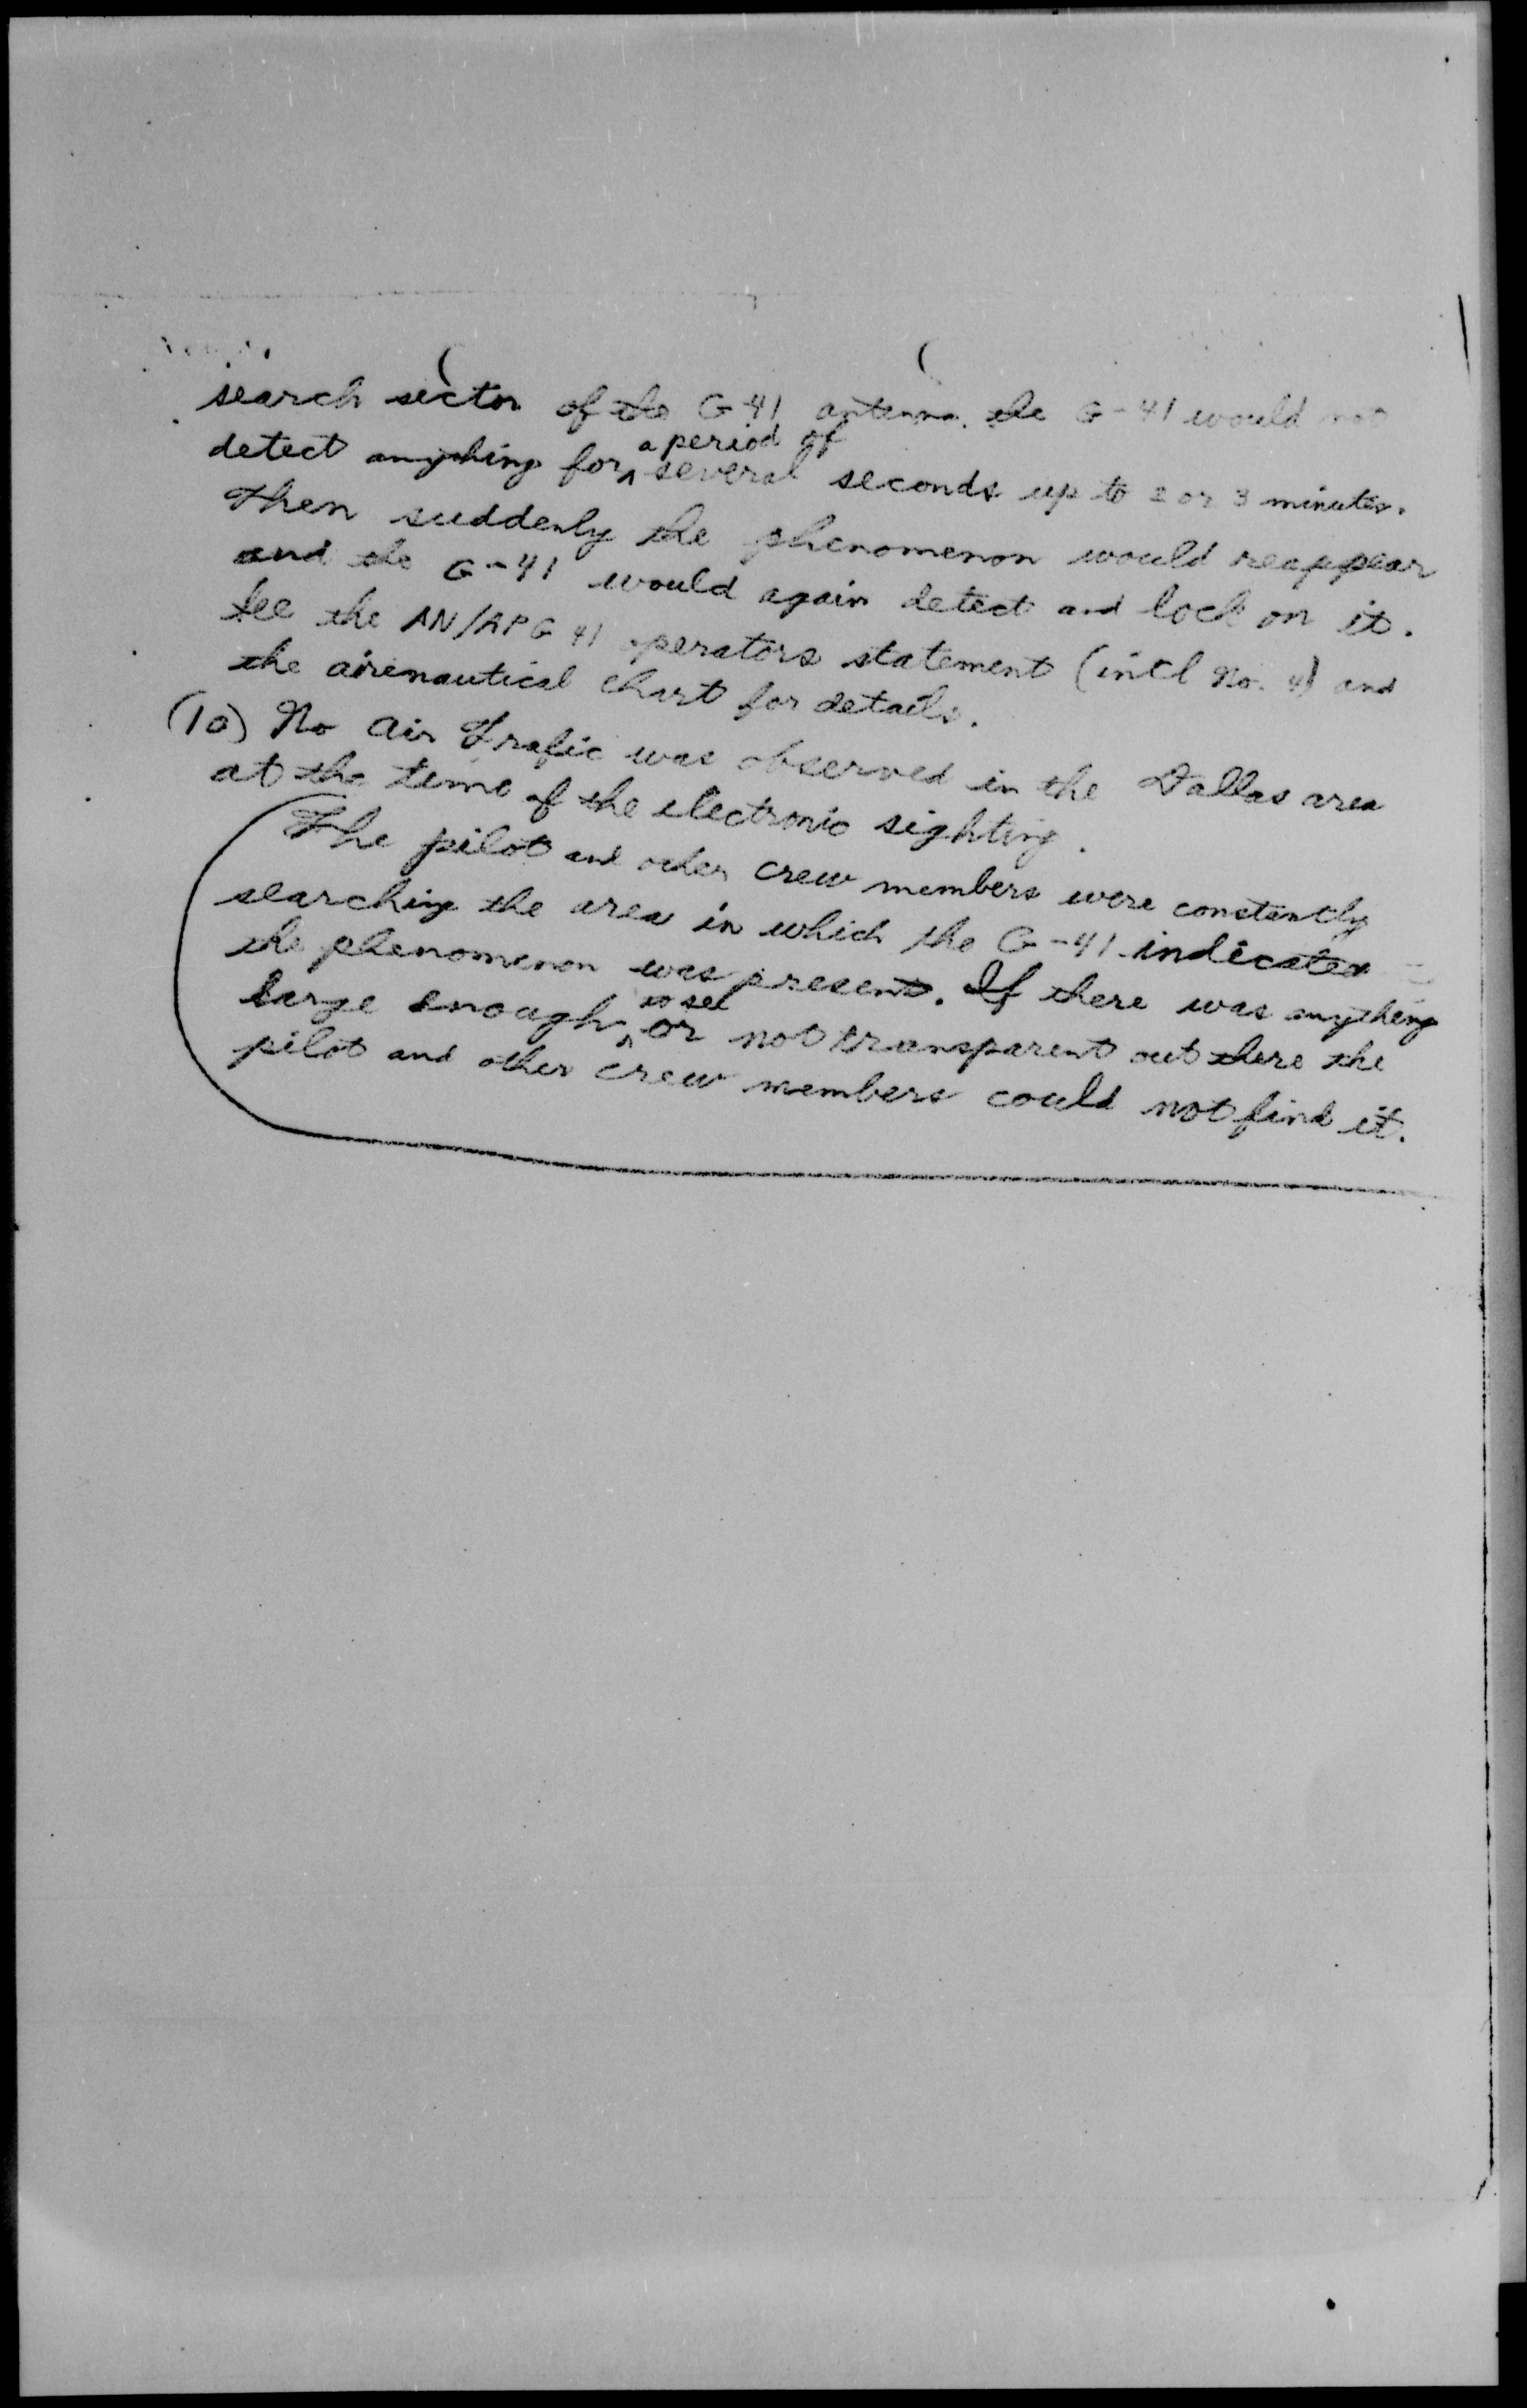 search sector of the G-41 antenna. the G-41 would not
detect anything for a period of several seconds up to 2 or 3 minutes.
Then suddenly the phenomenon would reappear
and the G-41 would again detect and lock on it.
See the AN/APG 41 operators statement (incl No. 4) and
the airenautical chart for details.
(10) No air trafic was observed in the Dallas area
at the time of the electronic sighting.
The pilot and other crew members were constantly
searching the area in which the G-41 indicated
the phenomenon was present. If there was anything
large enough to see or not transparent out there the
pilot and other crew members could not find it.